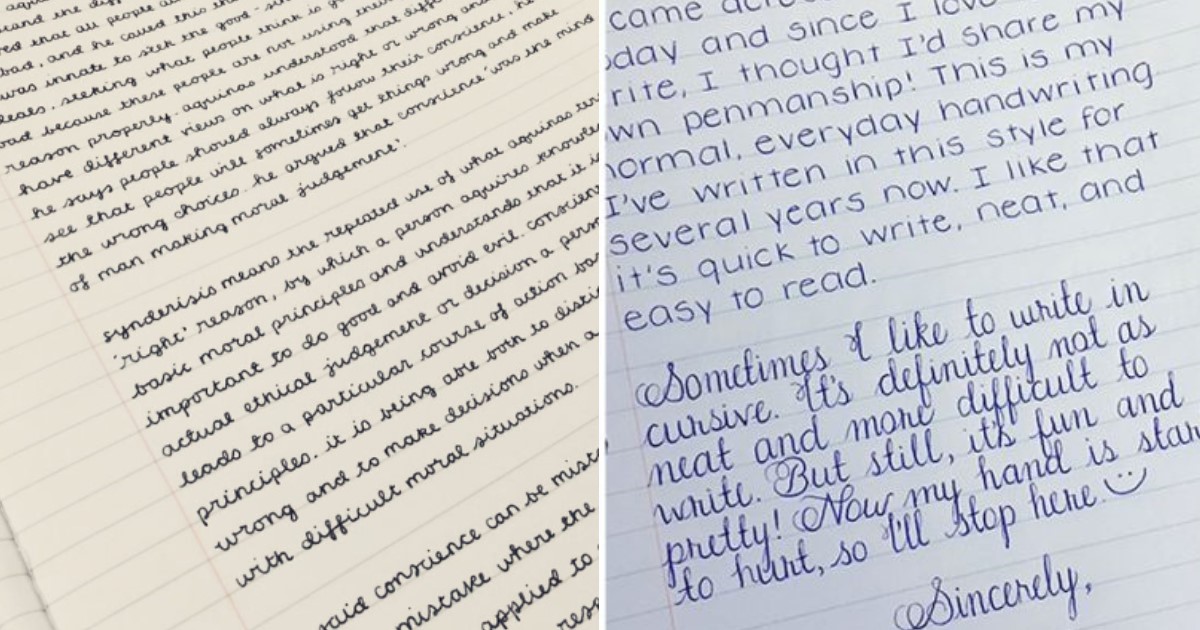 and the diff
that all people a
bad, and he called this th
was innate to seek the good - si
ideals, seeking what people think is g
bad because these people are not using thei
reason properly. aquinas understood that diff
have different views on what is right or wrong an
he says people should always follow their conscience, he
see that people will sometimes get things wrong and make
the wrong choices. he argued that conscience 'was the mind
of man making moral judgement'.
synderisis means the repeated use of what aquinas ter
'right' reason, by which a person aquires knowle
basic moral principles and understands that it is
important to do good and avoid evil. conscien
actual ethical judgement or decision a pers
leads to a particular course of action ba
principles. it is being able both to disti
wrong and to make decisions when a
with difficult moral situations.
said conscience can be mist
mistake where the
applied to
resp
came acr
oday and since I lov
rite, I thought I'd share my
wn penmanship! This is my
normal, everyday handwriting
I've written in this style for
several years now. I like that
it's quick to write, neat, and
easy to read.
Sometimes I like to write in
cursive. It's definitely not as
neat and more difficult to
write. But still, it's fun and
pretty! Now my hand is star
to hurt, so I'll stop here.
Sincerely,